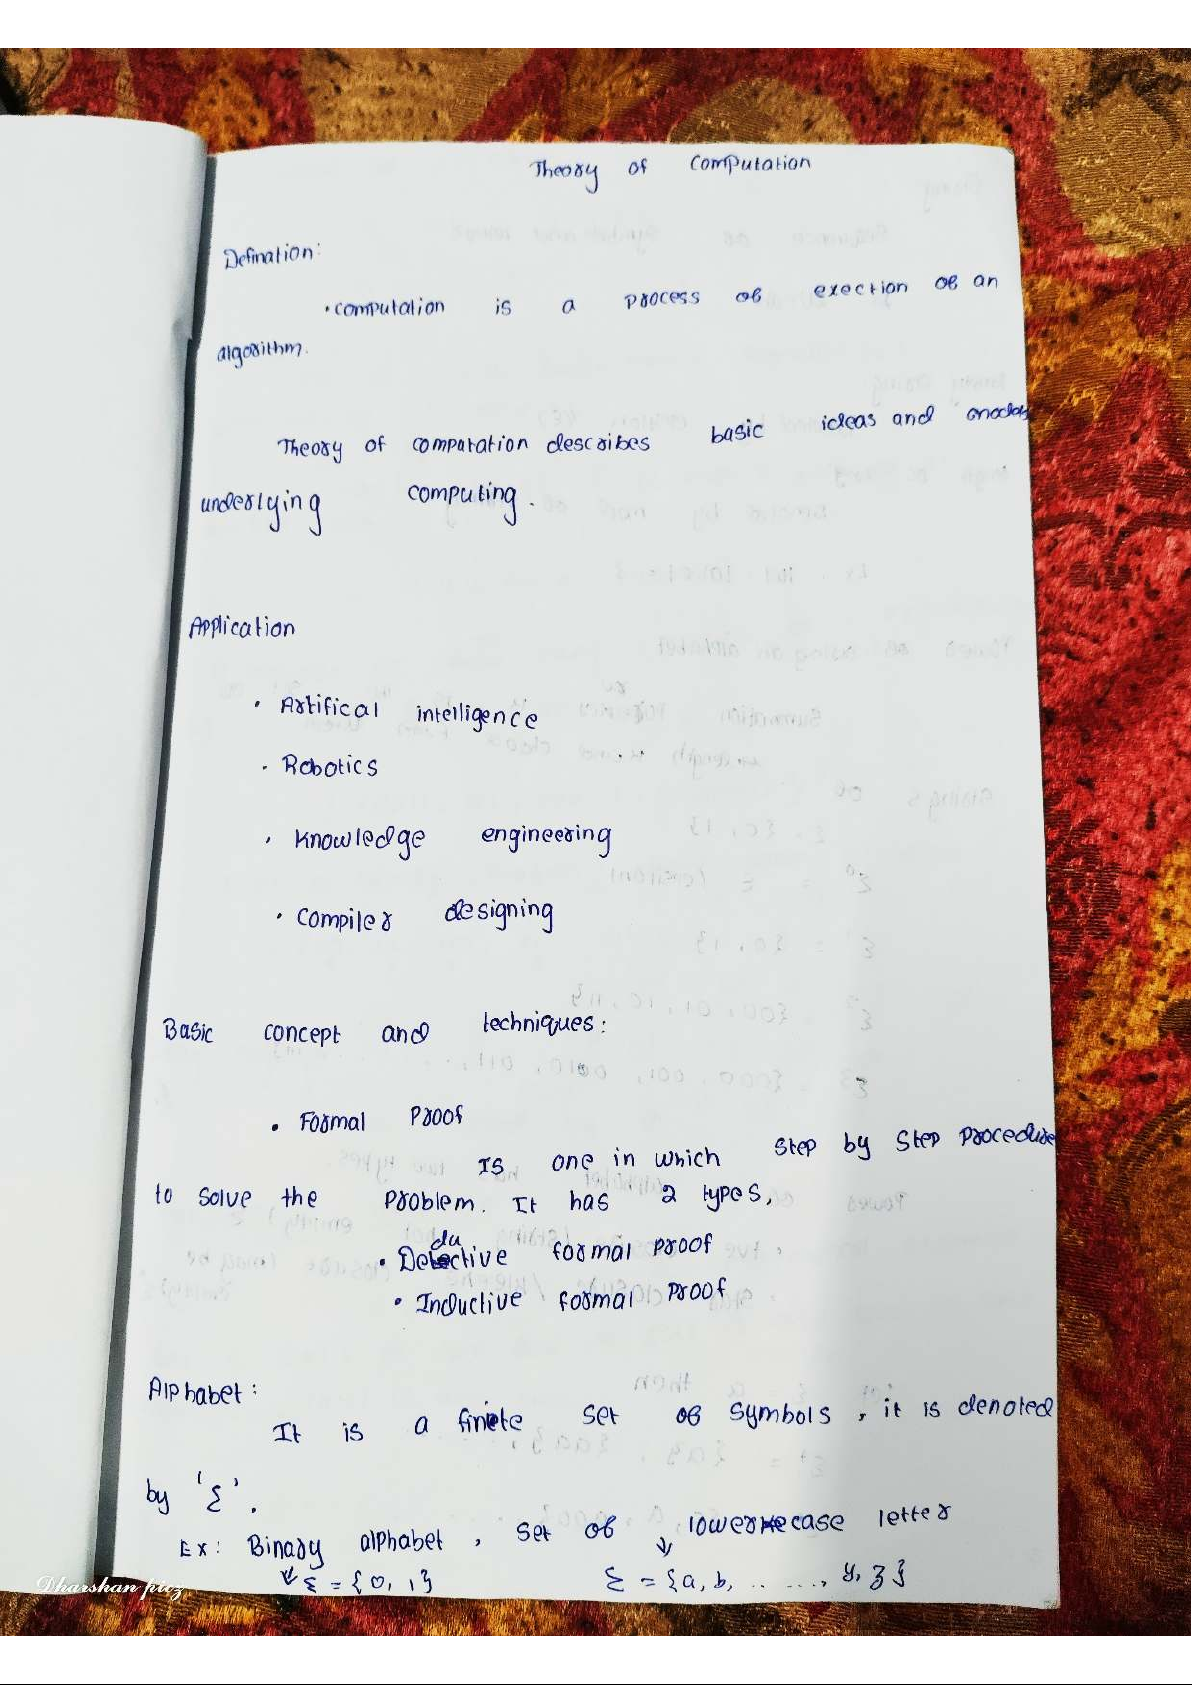 Theory of Computation
Defination:
• computation is a process of exection of an
algorithm.
Theory of computation describes basic ideas and models
underlying computing.
Application
• Artifical intelligence
• Robotics
• Knowledge engineering
• Compiler designing
Basic concept and techniques:
• Formal Proof
Is one in which step by step procedure
to solve the problem. It has 2 types,
• Deductive formal proof
• Inductive formal proof
Alphabet:
It is a finite set of symbols, it is denoted
by 'Σ'.
Ex: Binary alphabet, set of lowercase letter
Σ = {0, 1} Σ = {a, b, .. ...., y, z}
Dharshan picz